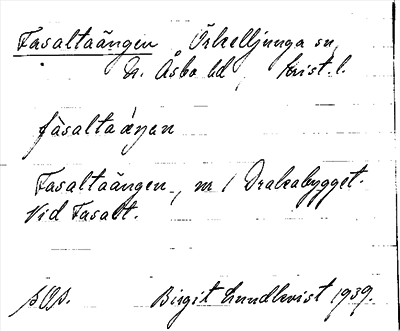 Fasaltaängen Örkelljunga sn,
N. Åsbo hd, Krist. l.
fàsaltaáŋen
Fasaltaängen, m / Drakabygget.
Vid Fasalt.
Birgit Lundkvist 1939.